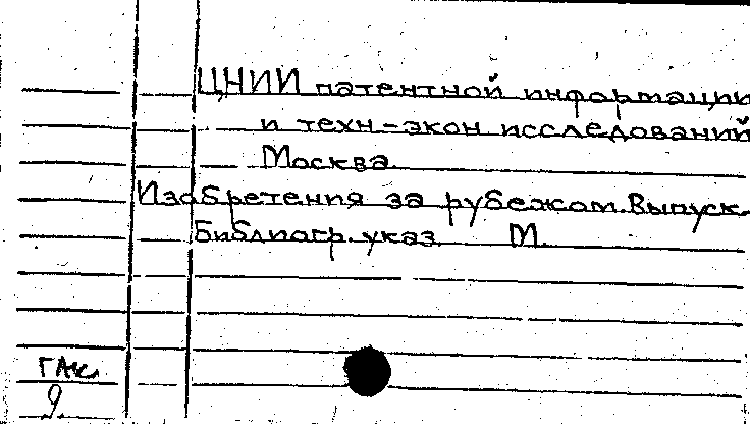 ЦНИИ патентной информации
и техн-экон исследований
Москва
Изобретения за рубежом. Выпуск.
Библиогр. указ. М.
ГАК
9